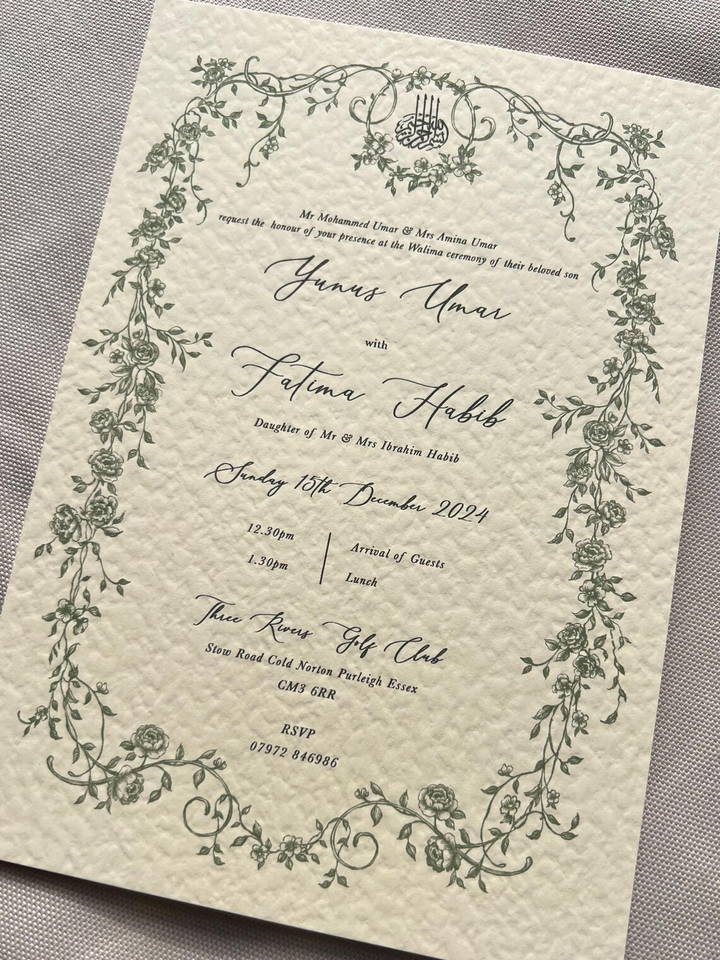 Mr Mohammed Umar & Mrs Amina Umar
request the honour of your presence at the Walima ceremony of their beloved son
Yunus Umar
with
Fatima Habib
Daughter of Mr & Mrs Ibrahim Habib
Sunday 15th December 2024
12.30pm Arrival of Guests
1.30pm Lunch
Three Rivers Golf Club
Stow Road Cold Norton Purleigh Essex
CM3 6RR
RSVP
07972 846986